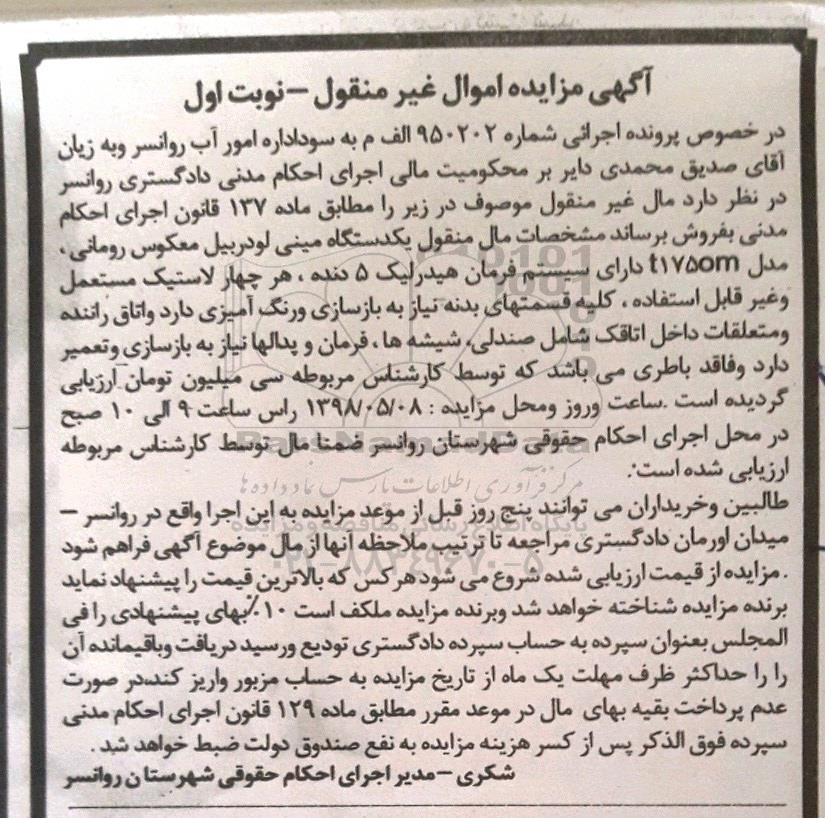 آگهی مزایده اموال غیر منقول – نوبت اول
در خصوص پرونده اجرائی شماره ۹۵۰۲۰۲ الف م به سوداداره امور آب روانسر وبه زیان
آقای صدیق محمدی دایر بر محکومیت مالی اجرای احکام مدنی دادگستری روانسر
در نظر دارد مال غیر منقول موصوف در زیر را مطابق ماده ۱۳۷ قانون اجرای احکام
مدنی بفروش برساند مشخصات مال منقول یکدستگاه مینی لودربیل معکوس رومانی،
مدل t۱۷۵om دارای سیستم فرمان هیدرلیک ۵ دنده ، هر چهار لاستیک مستعمل
وغیر قابل استفاده ، کلیه قسمتهای بدنه نیاز به بازسازی ورنگ آمیزی دارد واتاق راننده
ومتعلقات داخل اتاقک شامل صندلی، شیشه ها ، فرمان و پدالها نیاز به بازسازی وتعمیر
دارد وفاقد باطری می باشد که توسط کارشناس مربوطه سی میلیون تومان ارزیابی
گردیده است .ساعت وروز ومحل مزایده : ۱۳۹۸/۰۵/۰۸ راس ساعت ۹ الی ۱۰ صبح
در محل اجرای احکام حقوقی شهرستان روانسر ضمنا مال توسط کارشناس مربوطه
ارزیابی شده است:.
طالبین وخریداران می توانند پنج روز قبل از موعد مزایده به این اجرا واقع در روانسر –
میدان اورمان دادگستری مراجعه تا ترتیب ملاحظه آنها از مال موضوع آگهی فراهم شود
. مزایده از قیمت ارزیابی شده شروع می شود هرکس که بالاترین قیمت را پیشنهاد نماید
برنده مزایده شناخته خواهد شد وبرنده مزایده ملکف است ۱۰٪بهای پیشنهادی را فی
المجلس بعنوان سپرده به حساب سپرده دادگستری تودیع ورسید دریافت وباقیمانده آن
را را حداکثر ظرف مهلت یک ماه از تاریخ مزایده به حساب مزبور واریز کند.در صورت
عدم پرداخت بقیه بهای مال در موعد مقرر مطابق ماده ۱۲۹ قانون اجرای احکام مدنی
سپرده فوق الذکر پس از کسر هزینه مزایده به نفع صندوق دولت ضبط خواهد شد .
شکری – مدیر اجرای احکام حقوقی شهرستان روانسر
ParsNamadData
مرکز فرآوری اطلاعات پارس نماد داده ها
پایگاه اطلاع رسانی مناقصه و مزایده
۰۲۱-۸۸۳۴۹۶۷۰-۵